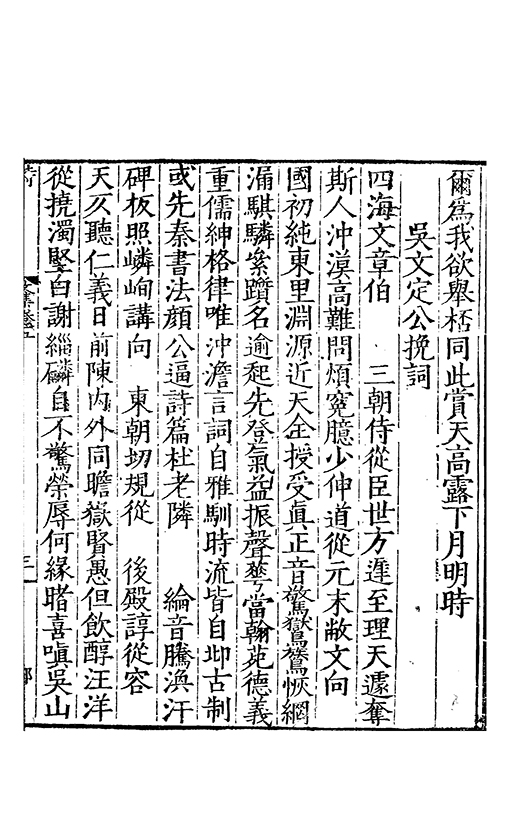 爾爲我欲舉桮同此賞天高露下月明時
吳文定公挽詞
四海文章伯　三朝侍從臣世方遑至理天遽奪
斯人沖漠高難問煩寃臆少伸道從元末敝文向
國初純東里淵源近天全授受眞正音鸑鷟恢綱
漏騏驎紫躓名逾起先登氣益振聲華當翰苑德義
重儒紳格律唯沖澹言詞自雅馴時流皆自抑古制
或先秦書法顏公逼詩篇杜老隣　綸音騰渙汗
碑板照嶙峋講向　東朝切規從　後殿諄從容
天仄聽仁義日前陳内外同瞻嶽賢愚但飲醇汪洋
從撓濁堅白謝緇磷自不驚榮辱何緣睹喜嗔吳山